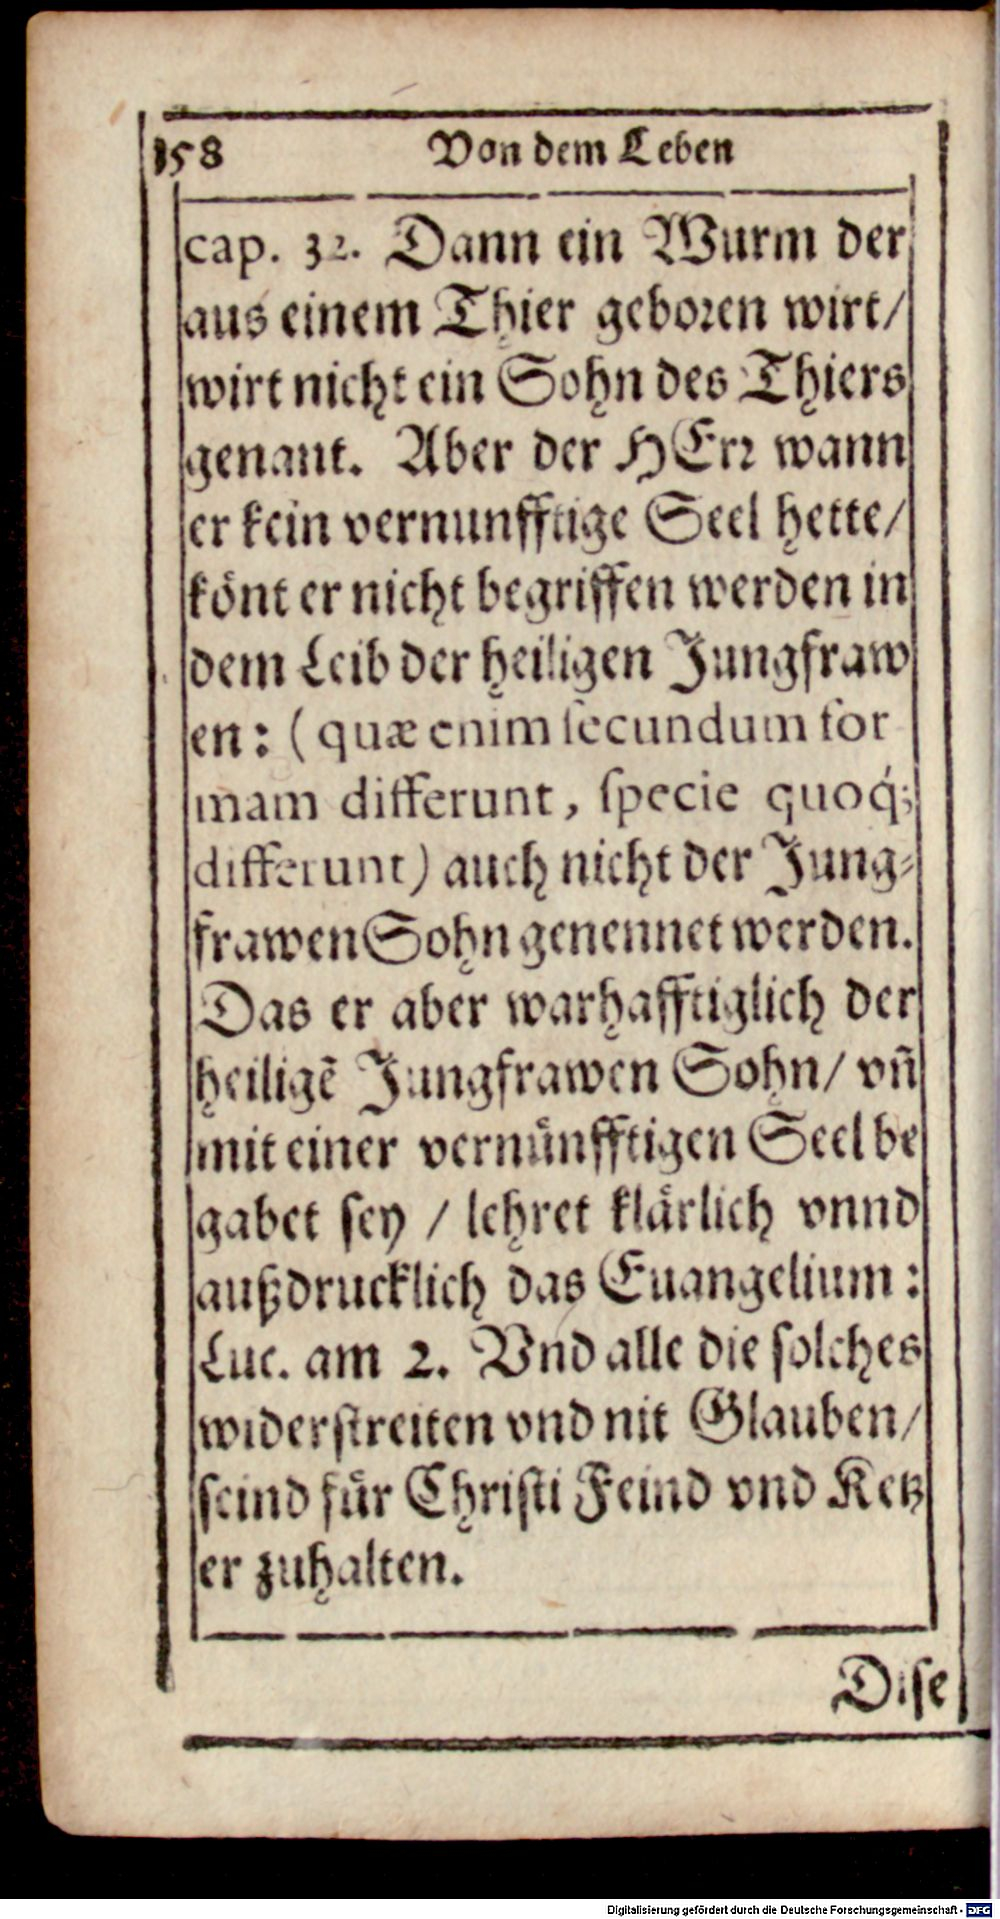 158 Von dem Leben
cap. 32. Dann ein Wurm der
aus einem Thier geboꝛen wirt/
wirt nicht ein Sohn des Thiers
genant. Aber der HErꝛ wann
er kein vernunfftige Seel hette/
könt er nicht begriffen werden in
dem Leib der heiligen Jungfraw
en: (quæ enim ſecundum for
mam differunt, ſpecie quoq́;
differunt) auch nicht der Jung⸗
frawen Sohn genennet werden.
Das er aber warhafftiglich der
heiligẽ Jungfrawen Sohn/ vñ
mit einer vernuͤnfftigen Seel be
gabet ſey / lehret klaͤrlich vnnd
außdrucklich das Euangelium:
Luc. am 2. Vnd alle die ſolches
widerſtreiten vnd nit Glauben/
ſeind fuͤr Chriſti Feind vnd Ketz
er zuhalten.
Diſe
Digitalisierung gefördert durch die Deutsche Forschungsgemeinschaft - DFG